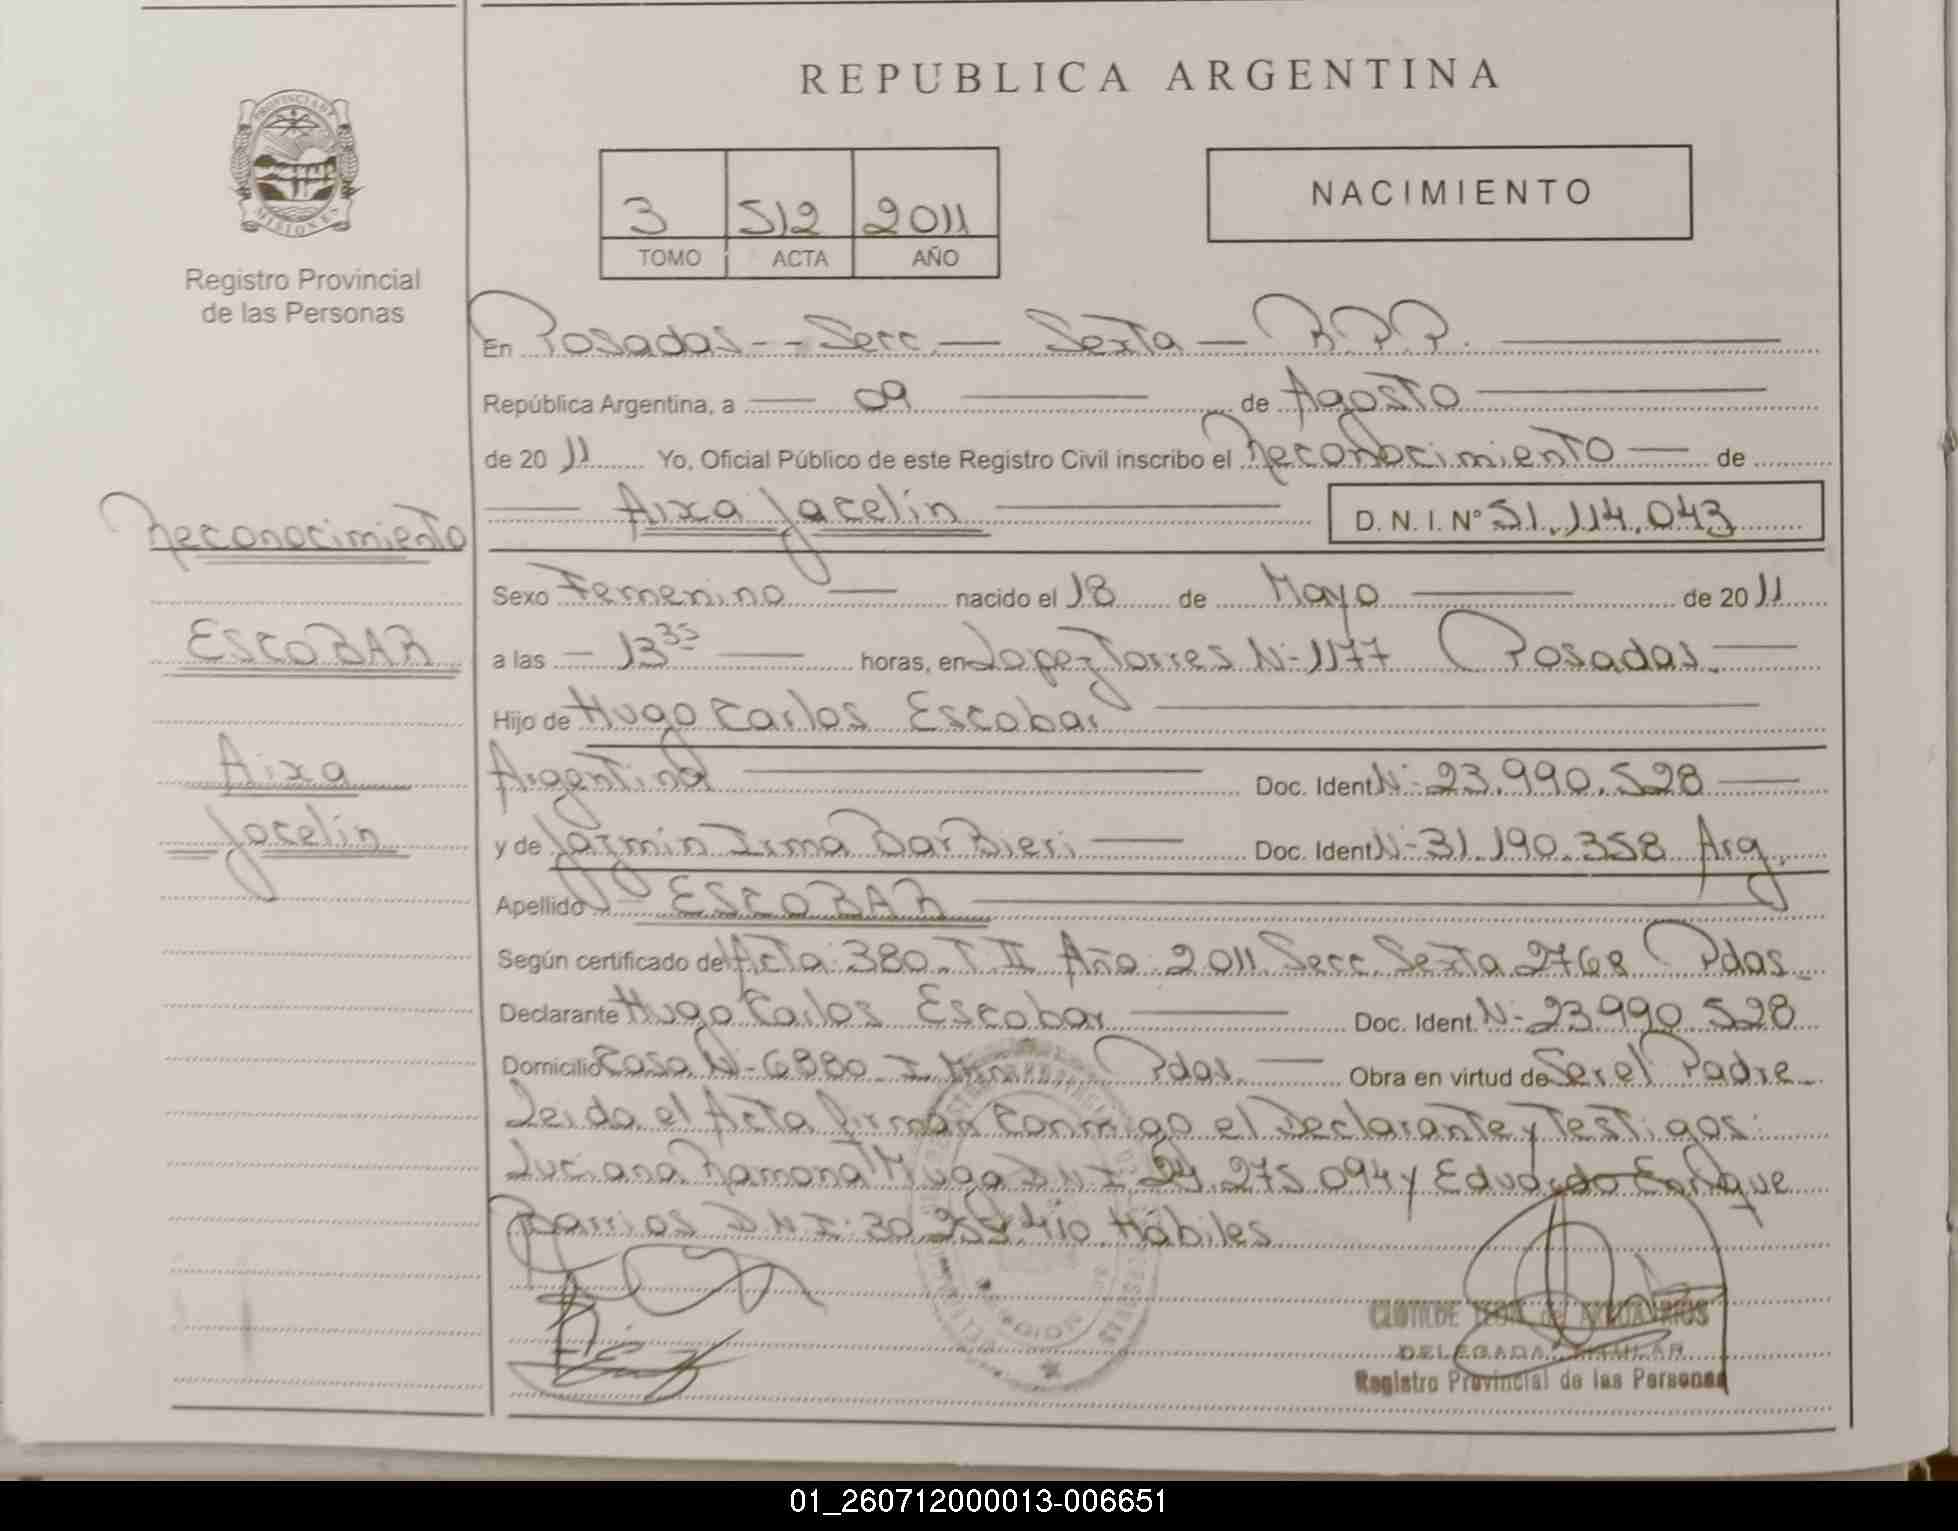 REPUBLICA ARGENTINA
PROVINCIA DE
MISIONES
Registro Provincial
de las Personas
3 512 2011
TOMO ACTA AÑO
NACIMIENTO
En Posadas -- Secc. — Sexta — R.P.P.
República Argentina, a — 09 — de Agosto
de 20 11 Yo, Oficial Público de este Registro Civil inscribo el Reconocimiento — de
— Aixa Jacelín — D. N. I. Nº 51.114.043
Reconocimiento
Sexo Femenino — nacido el 18 de Mayo — de 20 11
ESCOBAR
a las — 13 35 — horas, en Lopez Torres N- 1177 Posadas. —
Hijo de Hugo Carlos Escobar —
Aixa
Argentina — Doc. Ident. N- 23.990.528 —
Jacelín
y de Jazmin Irma Barbieri — Doc. Ident. N- 31.190.358 Arg.
Apellido — ESCOBAR —
Según certificado del Acta: 380. T. II Año: 2011 Secc. Sexta 2768 Pdas.
Declarante Hugo Carlos Escobar — Doc. Ident. N- 23.990.528
Domicilio Casa N- 6880 I. Pdas. — Obra en virtud de Ser el Padre
Leida el Acta firman conmigo el Declarante y Testigos:
Luciana Ramona D N I 24.275.094 y Eduardo Enrique
Barrios D.N.I: 30.255.410 Hábiles
CLOTILDE de
DELEGADA TITULAR
Registro Provincial de las Personas
01_260712000013-006651